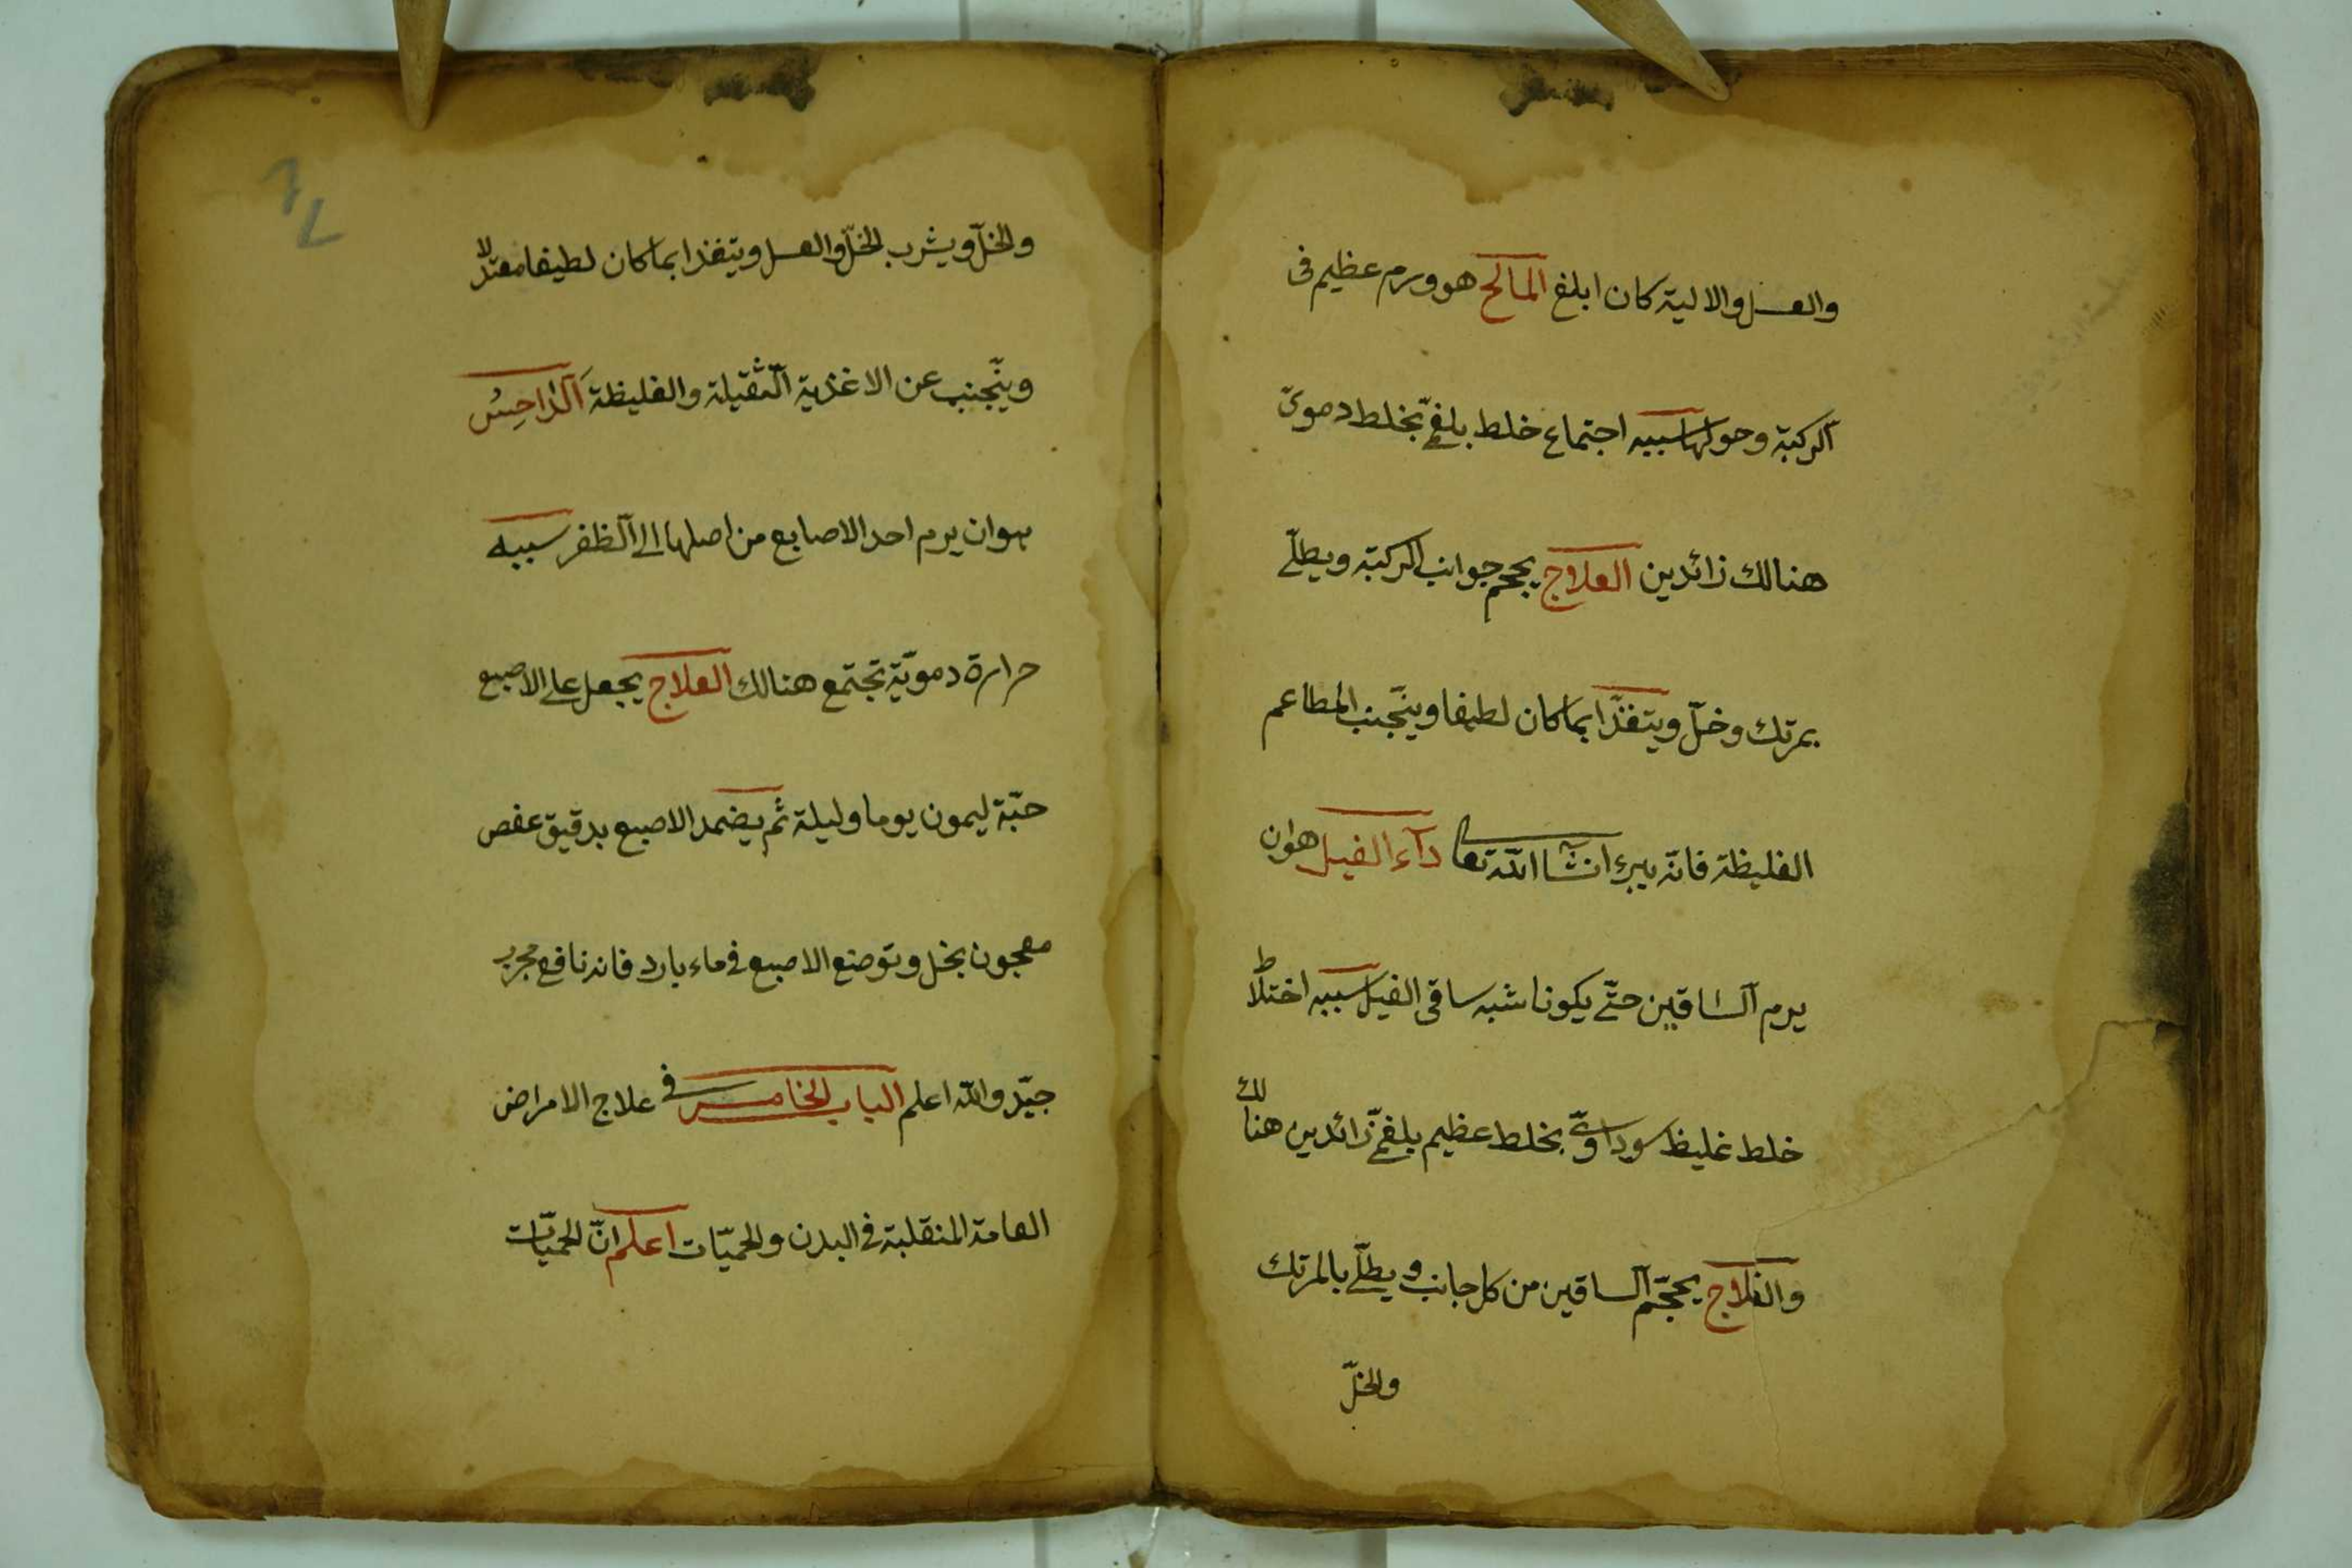 والعسل والالية كان ابلغ المالح هو ورم عظيم فى
الركبة وحولها سببه اجتماع خلط بلغمىّ بخلط دموىّ
هنالك زائدين العلاج يحجم جوانب الركبة ويطلّى
بمرتك وخلّ ويتغذّا بما كان لطيفا ويتجنب المطاعم
الغليظة فانّه يبرء انشاالله تعالى دآء الفيل هوان
يرم الساقين حتّى يكونا شبه ساقى الفيل سببه اختلاط
خلط غليظ سوداوىّ بخلط عظيم بلغمىّ زائدين هنالك
والعلاج يحجّم الساقين من كل جانب ويطلّى بالمرتك
والخلّ
والخلّ ويشرب الخلّ والعسل ويتغذا بما كان لطيفا معتدلا
ويتّجنب عن الاغذية الثقيلة والغليظة الداحِسُ
هوان يرم احد الاصابع من اصلها الى الظفر سببه
حرارة دمويّة تجتمع هنالك العلاج يجعل على الاصبع
حبّة ليمون يوما وليلة ثم يضمد الاصبع بدقيق عفص
معجون بخل وتوضع الاصبع فى ماء بارد فانه نافع مجرب
جيّد والله اعلم الباب الخامس فى علاج الامراض
العامة المنقلبة فى البدن والحميّات اعلم انّ الحميّات